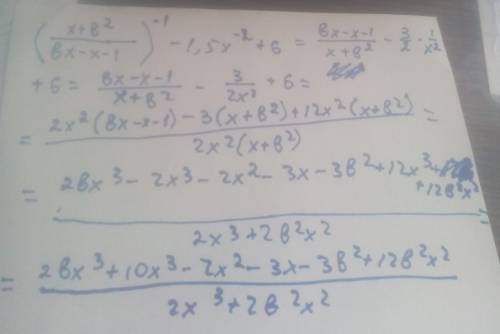 (x+в²/вx-x-1)⁻¹ - 1,5x⁻² + 6 = вx-x-1/x+в² - 3/2 · 1/x²
+ 6 = вx-x-1/x+в² - 3/2x² + 6 =
= 2x²(вx-x-1) - 3(x+в²) + 12x²(x+в²)/2x²(x+в²) =
= 2вx³ - 2x³ - 2x² - 3x - 3в² + 12x³ + 12в²x²/2x³+2в²x² =
= 2вx³ + 10x³ - 2x² - 3x - 3в² + 12в²x²/2x³+2в²x²